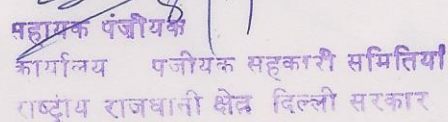 सहायक पंजीयक
कार्यालय पंजीयक सहकारी समितियाँ
राष्ट्रीय राजधानी क्षेत्र दिल्ली सरकार